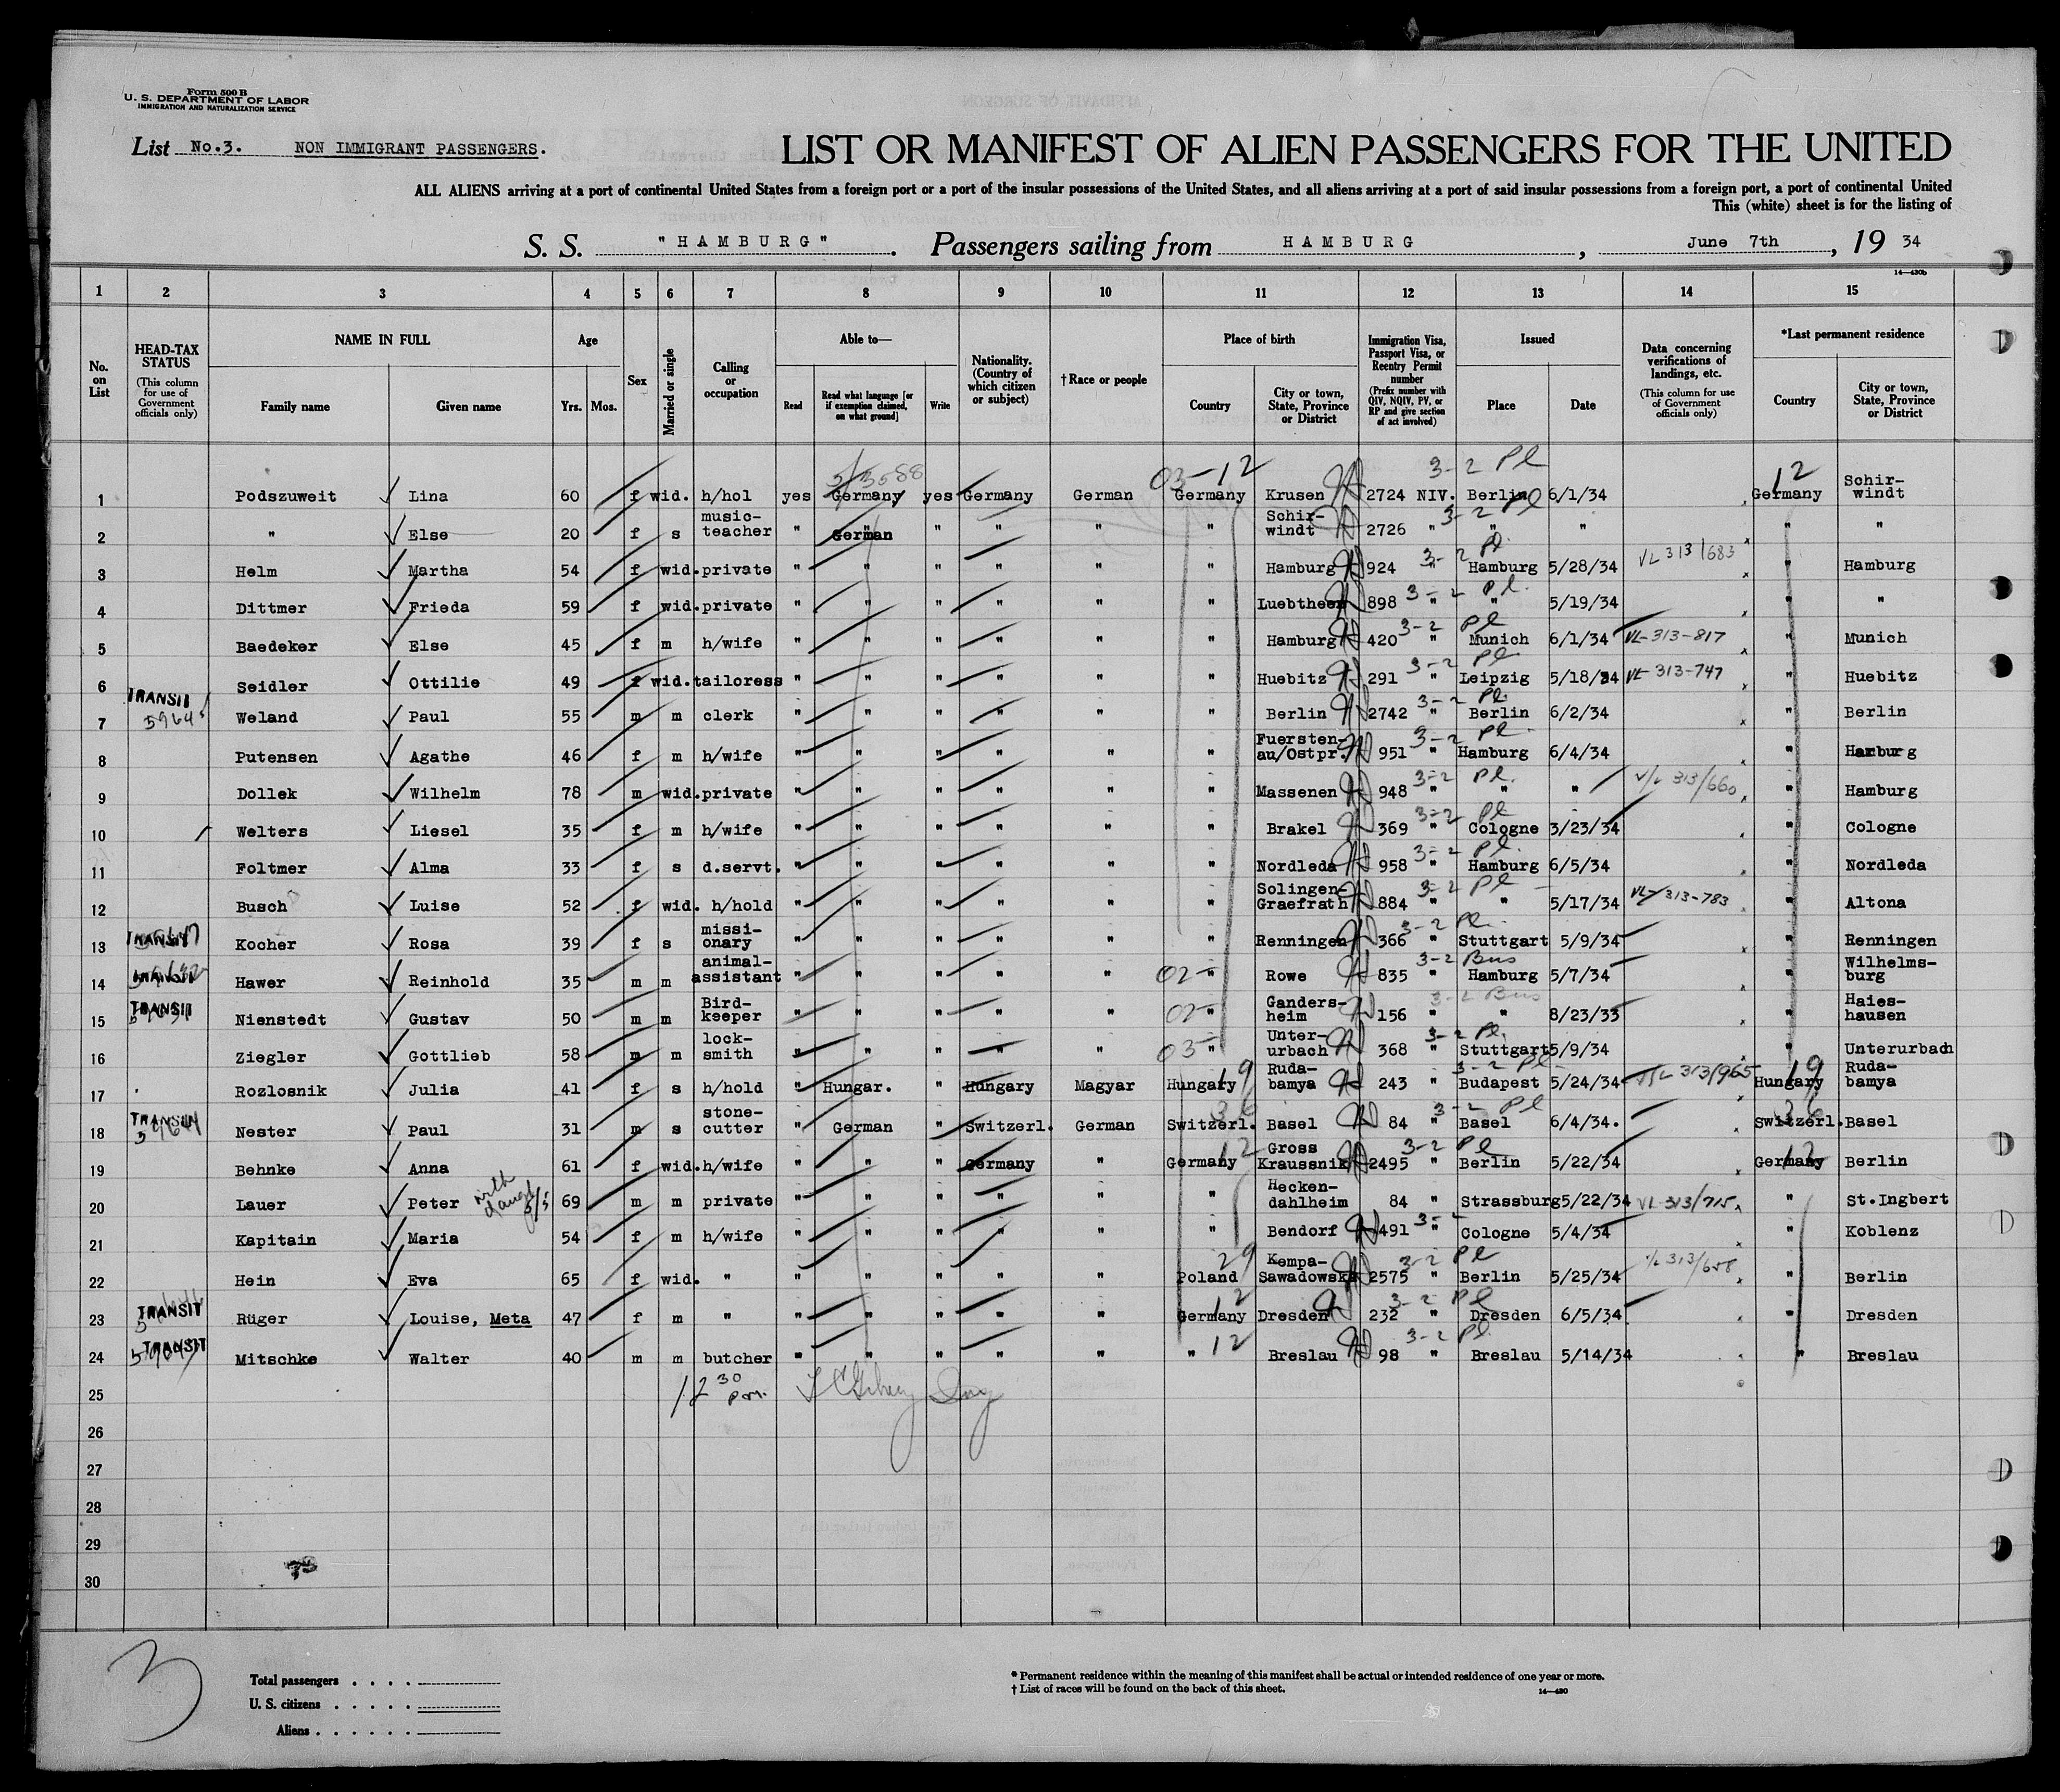 Form 500 B
U. S. DEPARTMENT OF LABOR
IMMIGRATION AND NATURALIZATION SERVICE
List No.3. NON IMMIGRANT PASSENGERS.
LIST OR MANIFEST OF ALIEN PASSENGERS FOR THE UNITED
ALL ALIENS arriving at a port of continental United States from a foreign port or a port of the insular possessions of the United States, and all aliens arriving at a port of said insular possessions from a foreign port, a port of continental United
This (white) sheet is for the listing of
S. S. "HAMBURG". Passengers sailing from HAMBURG, June 7th, 19 34
14—430b
1 2 3 4 5 6 7 8 9 10 11 12 13 14 15
No. on List
HEAD-TAX STATUS (This column for use of Government officials only)
NAME IN FULL Family name Given name
Age Yrs. Mos.
Sex
Married or single
Calling or occupation
Able to— Read Read what language [or if exemption claimed, on what ground] Write
Nationality. (Country of which citizen or subject)
†Race or people
Place of birth Country City or town, State, Province or District
Immigration Visa, Passport Visa, or Reentry Permit number (Prefix number with QIV, NQIV, PV, or RP and give section of act involved)
Issued Place Date
Data concerning verifications of landings, etc. (This column for use of Government officials only)
*Last permanent residence Country City or town, State, Province or District
1 Podszuweit Lina 60 f wid. h/hol yes Germany yes Germany German 03-12 Germany Krusen 2724 NIV. 3-2 Pl Berlin 6/1/34 12 Germany Schir-windt
2 " Else 20 f s music-teacher " German " " " " Schir-windt 2726 " 3-2 Pl " " " "
3 Helm Martha 54 f wid. private " " " " " " Hamburg 924 " 3-2 Pl. Hamburg 5/28/34 VL 313/683 " Hamburg
4 Dittmer Frieda 59 f wid. private " " " " " " Luebtheen 898 " 3-2 Pl. " 5/19/34 " "
5 Baedeker Else 45 f m h/wife " " " " " " Hamburg 420 " 3-2 Pl Munich 6/1/34 VL-313-817 " Munich
6 Seidler Ottilie 49 f wid. tailoress " " " " " " Huebitz 291 " 3-2 Pl. Leipzig 5/18/34 VL 313-747 " Huebitz
7 TRANSIT Weland Paul 55 m m clerk " " " " " " Berlin 2742 " 3-2 Pl. Berlin 6/2/34 " Berlin
8 Putensen Agathe 46 f m h/wife " " " " " " Fuersten-au/Ostpr. 951 " 3-2 Pl. Hamburg 6/4/34 " Harburg
9 Dollek Wilhelm 78 m wid. private " " " " " " Massenen 948 " 3-2 Pl. " " V/L 313/660 " Hamburg
10 Welters Liesel 35 f m h/wife " " " " " " Brakel 369 " 3-2 Pl Cologne 3/23/34 " Cologne
11 Foltmer Alma 33 f s d.servt. " " " " " " Nordleda 958 " 3-2 Pl. Hamburg 6/5/34 " Nordleda
12 Busch Luise 52 f wid. h/hold " " " " " " Solingen-Graefrath 884 " 3-2 Pl " 5/17/34 VL 313-783 " Altona
13 TRANSIT Kocher Rosa 39 f s missi-onary " " " " " " Renningen 366 " 3-2 Pl. Stuttgart 5/9/34 " Renningen
14 TRANSIT Hawer Reinhold 35 m m animal-assistant " " " " " 02- " Rowe 835 " 3-2 Bus Hamburg 5/7/34 " Wilhelms-burg
15 TRANSIT Nienstedt Gustav 50 m m Bird-keeper " " " " " 02- " Ganders-heim 156 " 3-2 Bus " 8/23/33 " Haies-hausen
16 Ziegler Gottlieb 58 m m lock-smith " " " " " 03- " Unter-urbach 368 " 3-2 Pl. Stuttgart 5/9/34 " Unterurbach
17 Rozlosnik Julia 41 f s h/hold " Hungar. " Hungary Magyar Hungary 19 Ruda-bamya 243 " 3-2 Pl- Budapest 5/24/34 V/L 313/965 Hungary 19 Ruda-bamya
18 TRANSIT Nester Paul 31 m s stone-cutter " German " Switzerl. German Switzerl. 36 Basel 84 " 3-2 Pl Basel 6/4/34. Switzerl. 36 Basel
19 Behnke Anna 61 f wid. h/wife " " " Germany " Germany 12 Gross Kraussnik 2495 " 3-2 Pl Berlin 5/22/34 Germany 12 Berlin
20 Lauer Peter 69 m m private " " " " " " Hecken-dahlheim 84 " Strassburg 5/22/34 VL 313/715 " St.Ingbert
21 Kapitain Maria 54 f m h/wife " " " " " " Bendorf 491 " 3-2 Cologne 5/4/34 " Koblenz
22 Hein Eva 65 f wid. " " " " " " Poland 29 Kempa-Sawadowska 2575 " 3-2 Pl Berlin 5/25/34 V/L 313/658 " Berlin
23 TRANSIT Rüger Louise, Meta 47 f m " " " " " " Germany 12 Dresden 232 " 3-2 Pl Dresden 6/5/34 " Dresden
24 TRANSIT Mitschke Walter 40 m m butcher " " " " " " 12 Breslau 98 " 3-2 Pl. Breslau 5/14/34 " Breslau
25 12 30 pm.
26
27
28
29
30
3
Total passengers
U. S. citizens
Aliens
* Permanent residence within the meaning of this manifest shall be actual or intended residence of one year or more.
† List of races will be found on the back of this sheet.
14—430